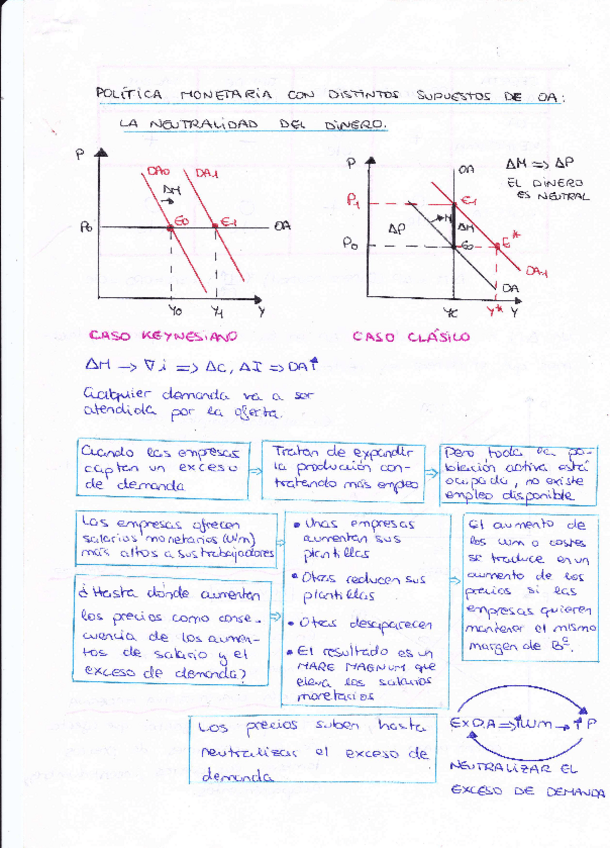 POLÍTICA MONETARIA CON DISTINTOS SUPUESTOS DE OA:
LA NEUTRALIDAD DEL DINERO.
P
DA0
DA1
ΔM
P0
E0
E1
OA
Y0
Y1
Y
CASO KEYNESIANO
P
OA
P1
E1
ΔP
M
ΔM
P0
E0
E*
DA1
DA
Yc
Y*
Y
CASO CLÁSICO
ΔM => ΔP
EL DINERO
ES NEUTRAL
ΔM → ∇i => ΔC, ΔI => DA↑
Cualquier demanda va a ser
atendida por la oferta.
Cuando las empresas
captan un exceso
de demanda
Tratan de expandir
la producción con-
tratando más empleo
Pero toda la po-
blación activa está
ocupada, no existe
empleo disponible
Las empresas ofrecen
salarios monetarios (Wm)
más altos a sus trabajadores
¿Hasta dónde aumentan
los precios como conse-
cuencia de los aumen-
tos de salario y el
exceso de demanda?
• Unas empresas
aumentan sus
plantillas
• Otras reducen sus
plantillas
• Otras desaparecen
• El resultado es un
MARE MAGNUM que
eleva los salarios
monetarios
El aumento de
los Wm o costes
se traduce en un
aumento de los
precios si las
empresas quieren
mantener el mismo
margen de Bº.
Los precios suben hasta
neutralizar el exceso de
demanda
ExD.A => ↑Wm → ↑P
NEUTRALIZAR EL
EXCESO DE DEMANDA